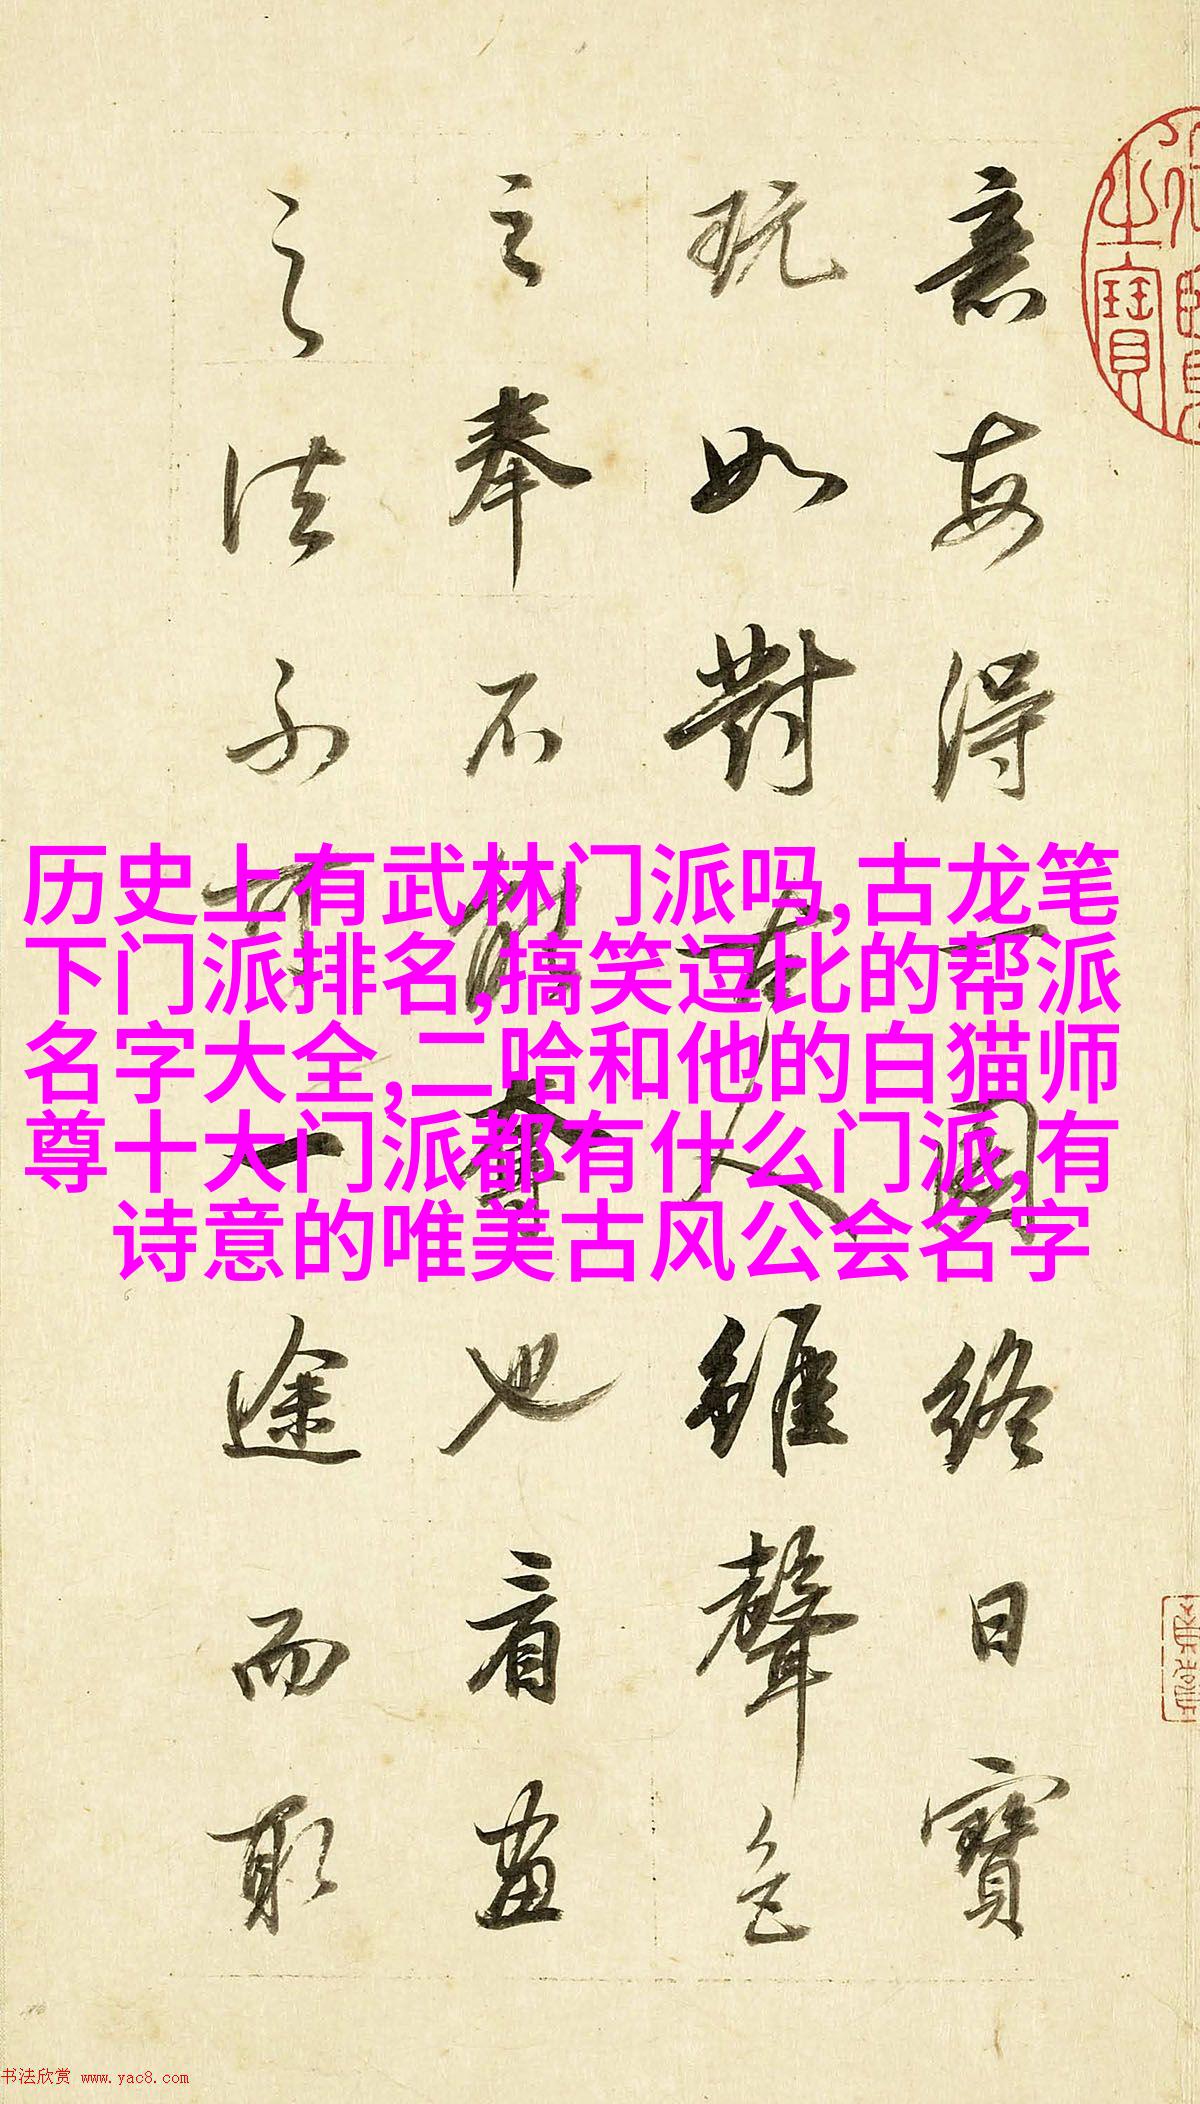 意每得一圖終日寶
玩如對古人雖聲色
之奉不能奪也看畫
之法不可一途而取
历史上有武林门派吗,古龙笔
下门派排名,搞笑逗比的帮派
名字大全,二哈和他的白猫师
尊十大门派都有什么门派,有
诗意的唯美古风公会名字
之寶
书法欣赏 www.yac8.com